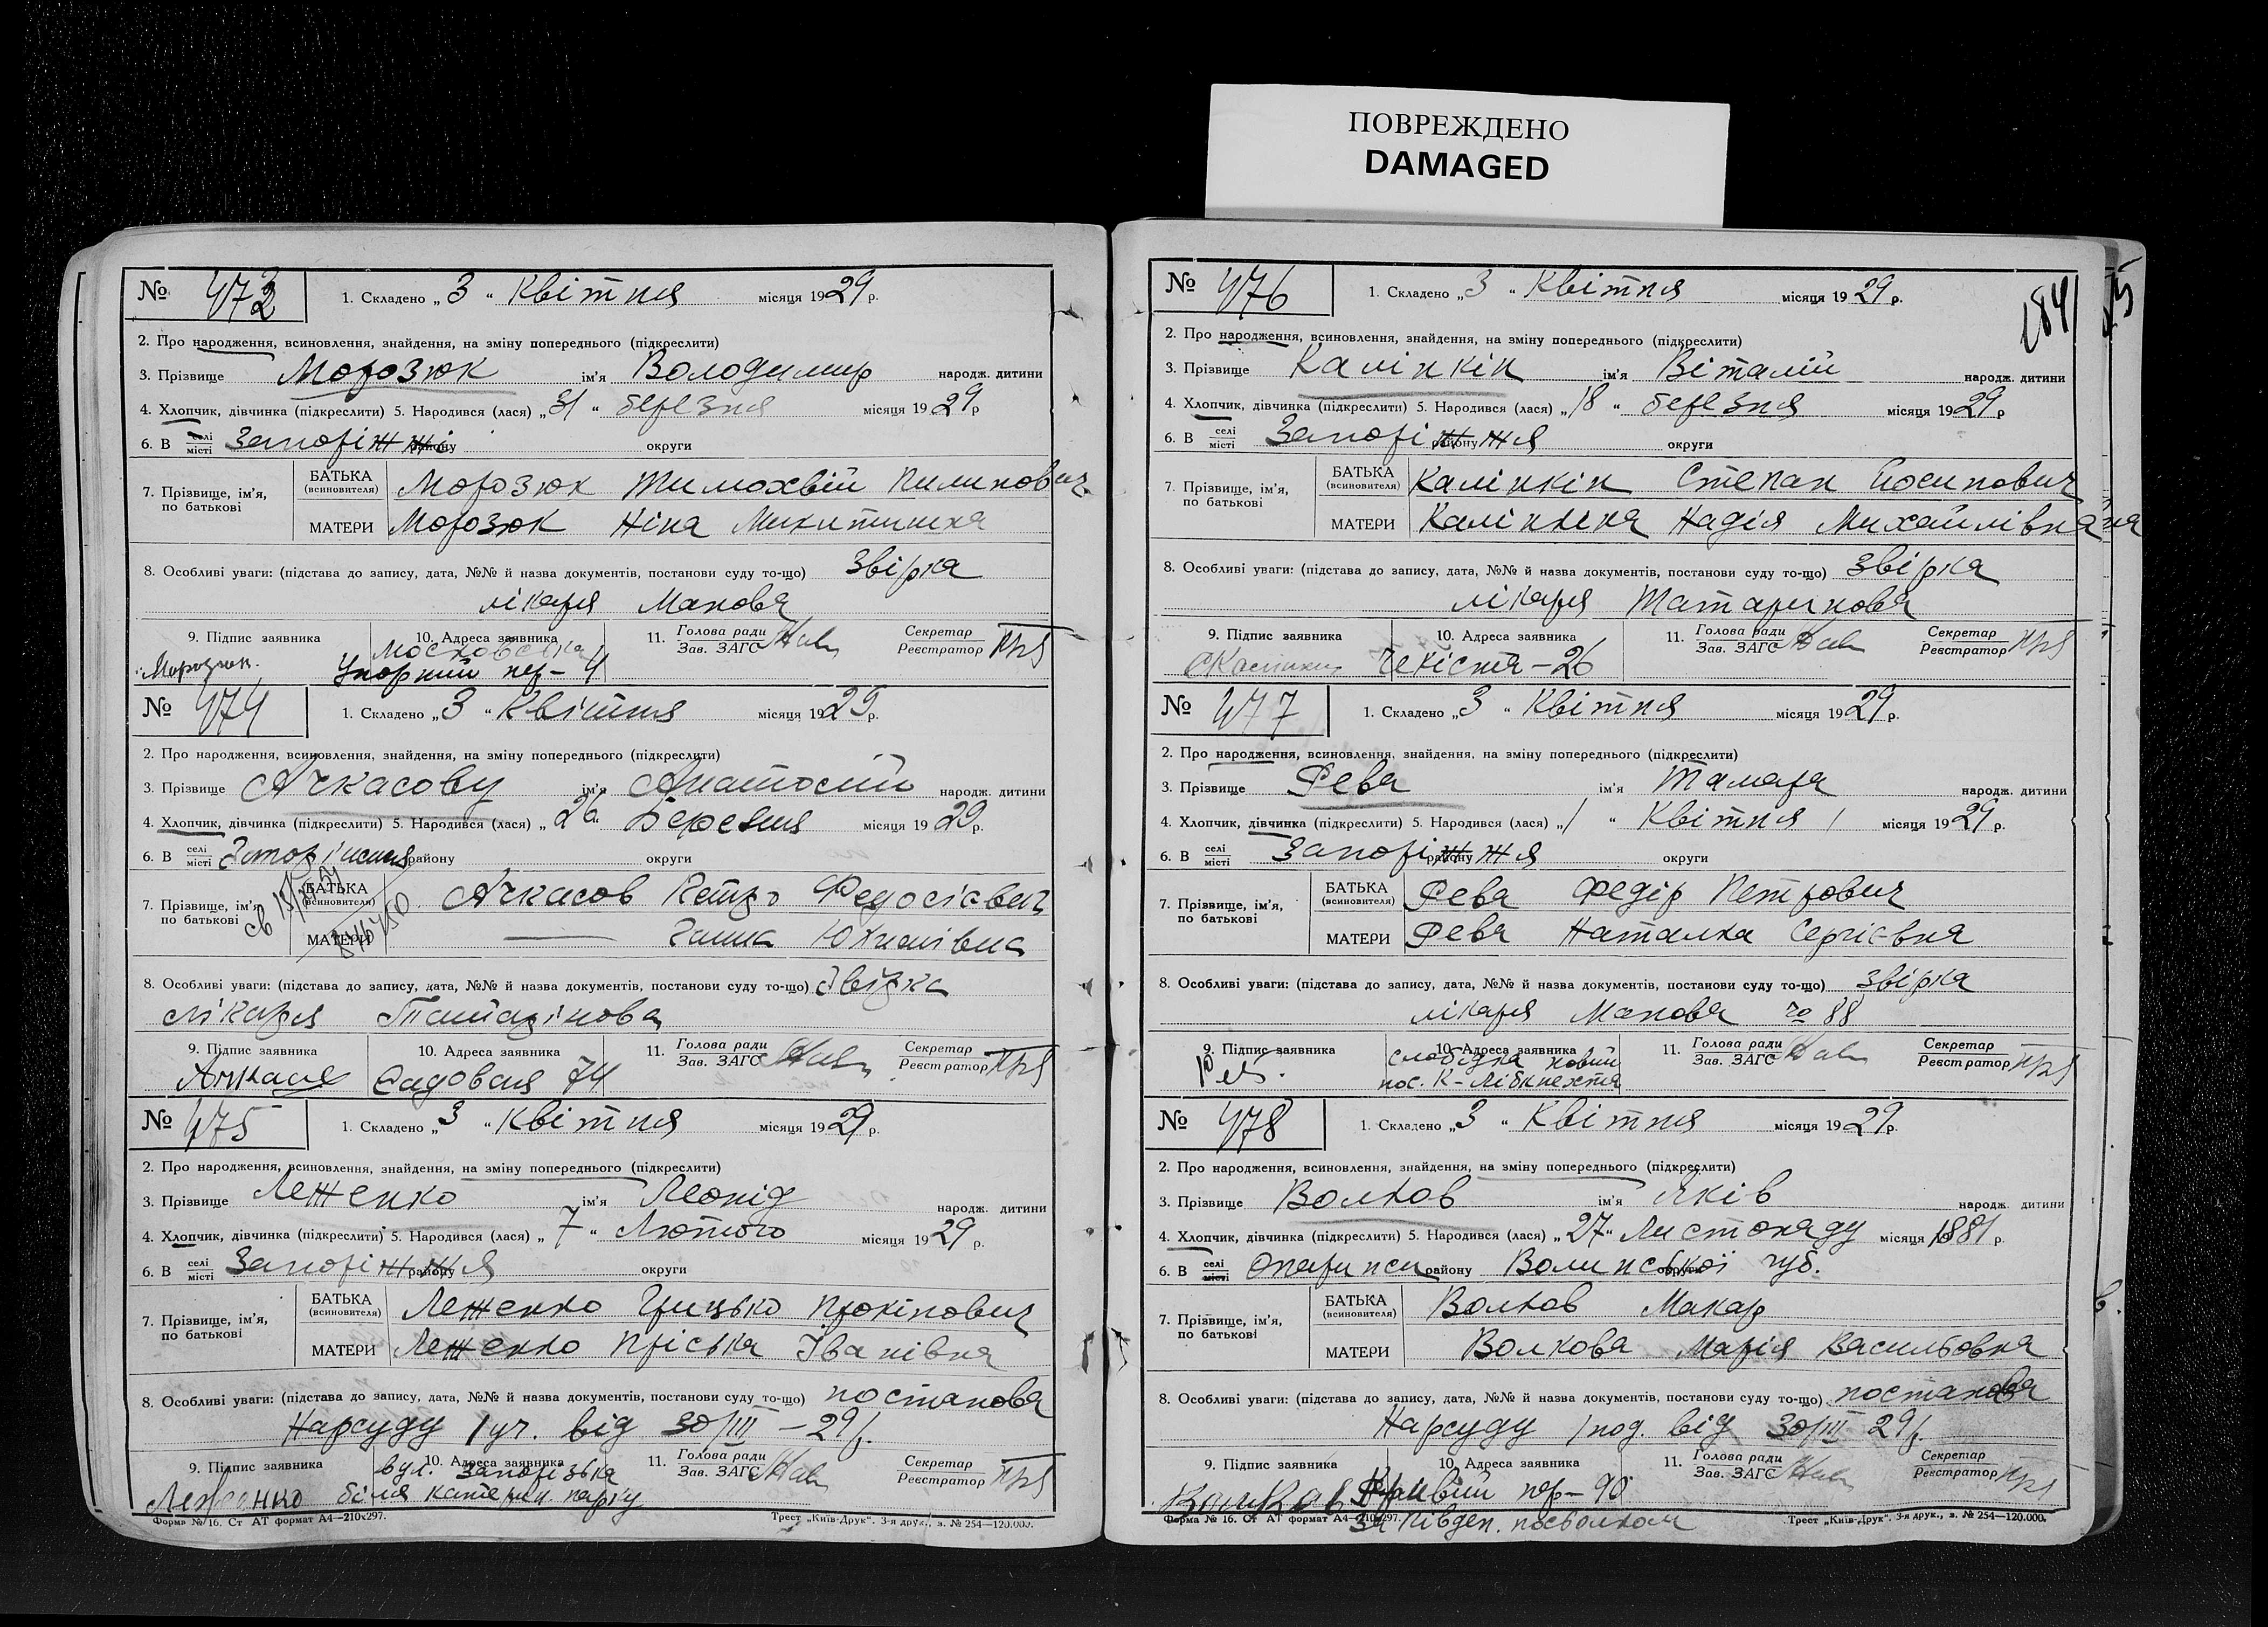 ПОВРЕЖДЕНО
DAMAGED
№ 473
1. Складено „ 3 “ Квітня місяця 1929 р.
2. Про народження, всиновлення, знайдення, на зміну попереднього (підкреслити)
3. Прізвище Морозюк ім'я Володимир народж. дитини
4. Хлопчик, дівчинка (підкреслити) 5. Народився (лася) „ 31 “ березня місяця 1929 р
6. В селі місті Запоріжжі району округи
7. Прізвище, ім'я, по батькові
БАТЬКА (всиновителя) Морозюк Тимохвій Пилипович
МАТЕРИ Морозюк Ніна Микитишна
8. Особливі уваги: (підстава до запису, дата, №№ й назва документів, постанови суду то-що) Звірка
лікаря Манова
9. Підпис заявника 10. Адреса заявника 11. Голова ради Зав. ЗАГС Секретар Реєстратор
Московська
Морозюк. Упорний пер – 4
№ 474
1. Складено „ 3 “ Квітня місяця 1929 р.
2. Про народження, всиновлення, знайдення, на зміну попереднього (підкреслити)
3. Прізвище Ачкасову ім'я Анатолій народж. дитини
4. Хлопчик, дівчинка (підкреслити) 5. Народився (лася) „ 26 “ Березня місяця 1929 р.
6. В селі місті району округи
7. Прізвище, ім'я, по батькові
БАТЬКА (всиновителя) Ачкасов Петро Федосієвич
МАТЕРИ — Галина Юхимівна
8. Особливі уваги: (підстава до запису, дата, №№ й назва документів, постанови суду то-що) Звірка
лікаря Татарінова
9. Підпис заявника 10. Адреса заявника 11. Голова ради Зав. ЗАГС Секретар Реєстратор
Садовая 74
№ 475
1. Складено „ 3 “ Квітня місяця 1929 р.
2. Про народження, всиновлення, знайдення, на зміну попереднього (підкреслити)
3. Прізвище Леженко ім'я Леонід народж. дитини
4. Хлопчик, дівчинка (підкреслити) 5. Народився (лася) „ 7 “ Лютого місяця 1929 р.
6. В селі місті Запоріжжя району округи
7. Прізвище, ім'я, по батькові
БАТЬКА (всиновителя) Леженко Грицько Прокіпович
МАТЕРИ Леженко Пріська Іванівна
8. Особливі уваги: (підстава до запису, дата, №№ й назва документів, постанови суду то-що) постанова
Нарсуду 1 уч. від 30/III – 29 р.
9. Підпис заявника 10. Адреса заявника 11. Голова ради Зав. ЗАГС Секретар Реєстратор
вул. Запорізька
Леженко біля катерин. парку
Форма № 16. Ст АТ формат А4—210х297. Трест „Київ-Друк“. 3-я друк., з. № 254—120.000.
№ 476
1. Складено „ 3 “ Квітня місяця 1929 р.
284
2. Про народження, всиновлення, знайдення, на зміну попереднього (підкреслити)
3. Прізвище Калінкін ім'я Віталій народж. дитини
4. Хлопчик, дівчинка (підкреслити) 5. Народився (лася) „ 18 “ березня місяця 1929 р
6. В селі місті Запоріжжя району округи
7. Прізвище, ім'я, по батькові
БАТЬКА (всиновителя) Калінкін Степан Йосипович
МАТЕРИ Калінкіна Надія Михайлівна
8. Особливі уваги: (підстава до запису, дата, №№ й назва документів, постанови суду то-що) Звірка
лікаря Татаринова
9. Підпис заявника 10. Адреса заявника 11. Голова ради Зав. ЗАГС Секретар Реєстратор
Чекіста – 26
№ 477
1. Складено „ 3 “ Квітня місяця 1929 р.
2. Про народження, всиновлення, знайдення, на зміну попереднього (підкреслити)
3. Прізвище Рева ім'я Тамара народж. дитини
4. Хлопчик, дівчинка (підкреслити) 5. Народився (лася) „ 1 “ Квітня місяця 1929 р.
6. В селі місті Запоріжжя району округи
7. Прізвище, ім'я, по батькові
БАТЬКА (всиновителя) Рева Федір Петрович
МАТЕРИ Рева Наталка Сергієвна
8. Особливі уваги: (підстава до запису, дата, №№ й назва документів, постанови суду то-що) звірка
лікаря Манова 88
9. Підпис заявника 10. Адреса заявника 11. Голова ради Зав. ЗАГС Секретар Реєстратор
слобідка новий
пос. К – Лібкнехта
№ 478
1. Складено „ 3 “ Квітня місяця 1929 р.
2. Про народження, всиновлення, знайдення, на зміну попереднього (підкреслити)
3. Прізвище Волков ім'я Яків народж. дитини
4. Хлопчик, дівчинка (підкреслити) 5. Народився (лася) „ 27 “ Листопаду місяця 1881 р.
6. В селі місті району Волинської округи губ.
7. Прізвище, ім'я, по батькові
БАТЬКА (всиновителя) Волков Макар
МАТЕРИ Волкова Марія Васильовна
8. Особливі уваги: (підстава до запису, дата, №№ й назва документів, постанови суду то-що) постанова
Нарсуду 1 под. від 30/III 29 р.
9. Підпис заявника 10. Адреса заявника 11. Голова ради Зав. ЗАГС Секретар Реєстратор
Волков Кривий пер – 90
за півден. посьолком
Форма № 16. Ст АТ формат А4—210х297. Трест „Київ-Друк“. 3-я друк., з. № 254—120.000.